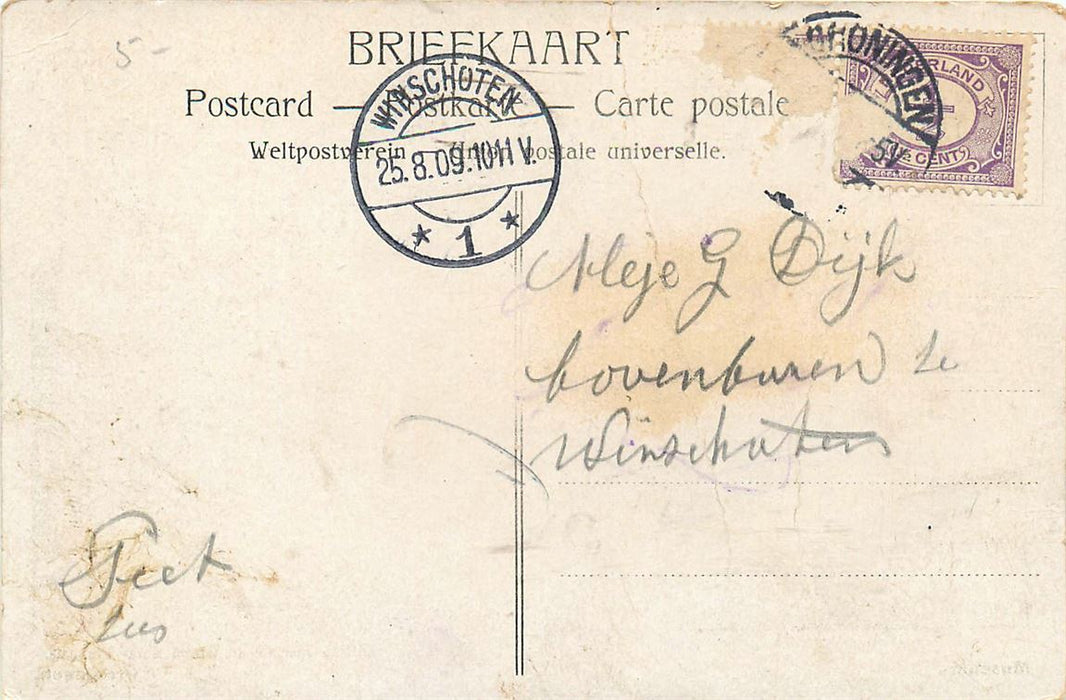 5-
BRIEFKAART
Postcard — Postkarte — Carte postale
Weltpostverein — Union postale universelle.
WINSCHOTEN
25.8.09.10-11 V.
* 1 *
GRONINGEN
5V
ERLAND
½ CENTS
Mej G Dijk
bovenburen te
Winschoten